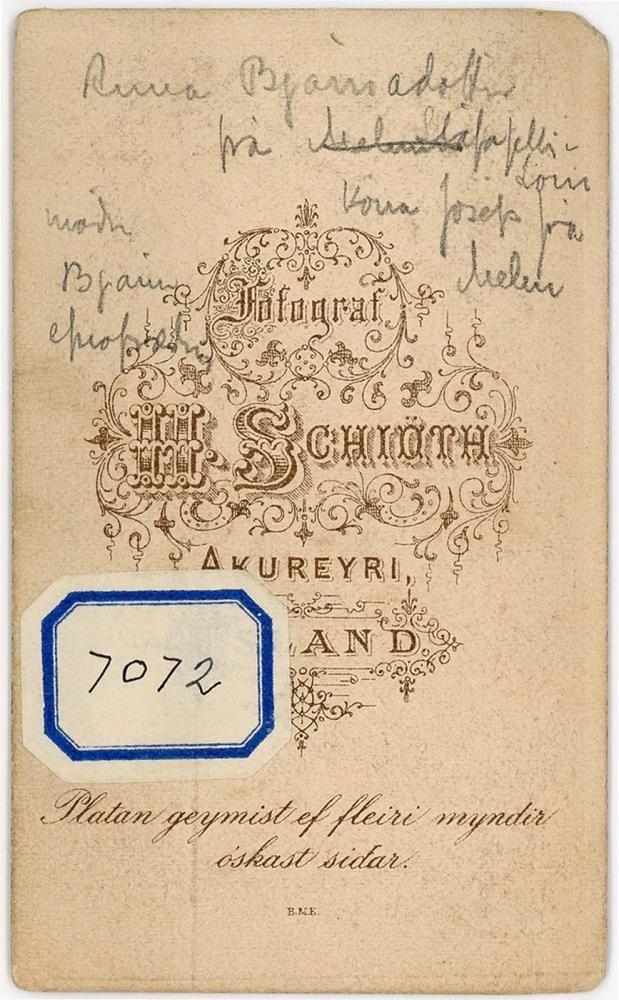 Anna Bjarnadóttir
frá
kona Jósefs frá
Melum
móðir
Bjarna
Fotograf
H. SCHIÖTH
AKUREYRI,
LAND.
7072
Platan geymist ef fleiri myndir
óskast siðar.
B.M.E.